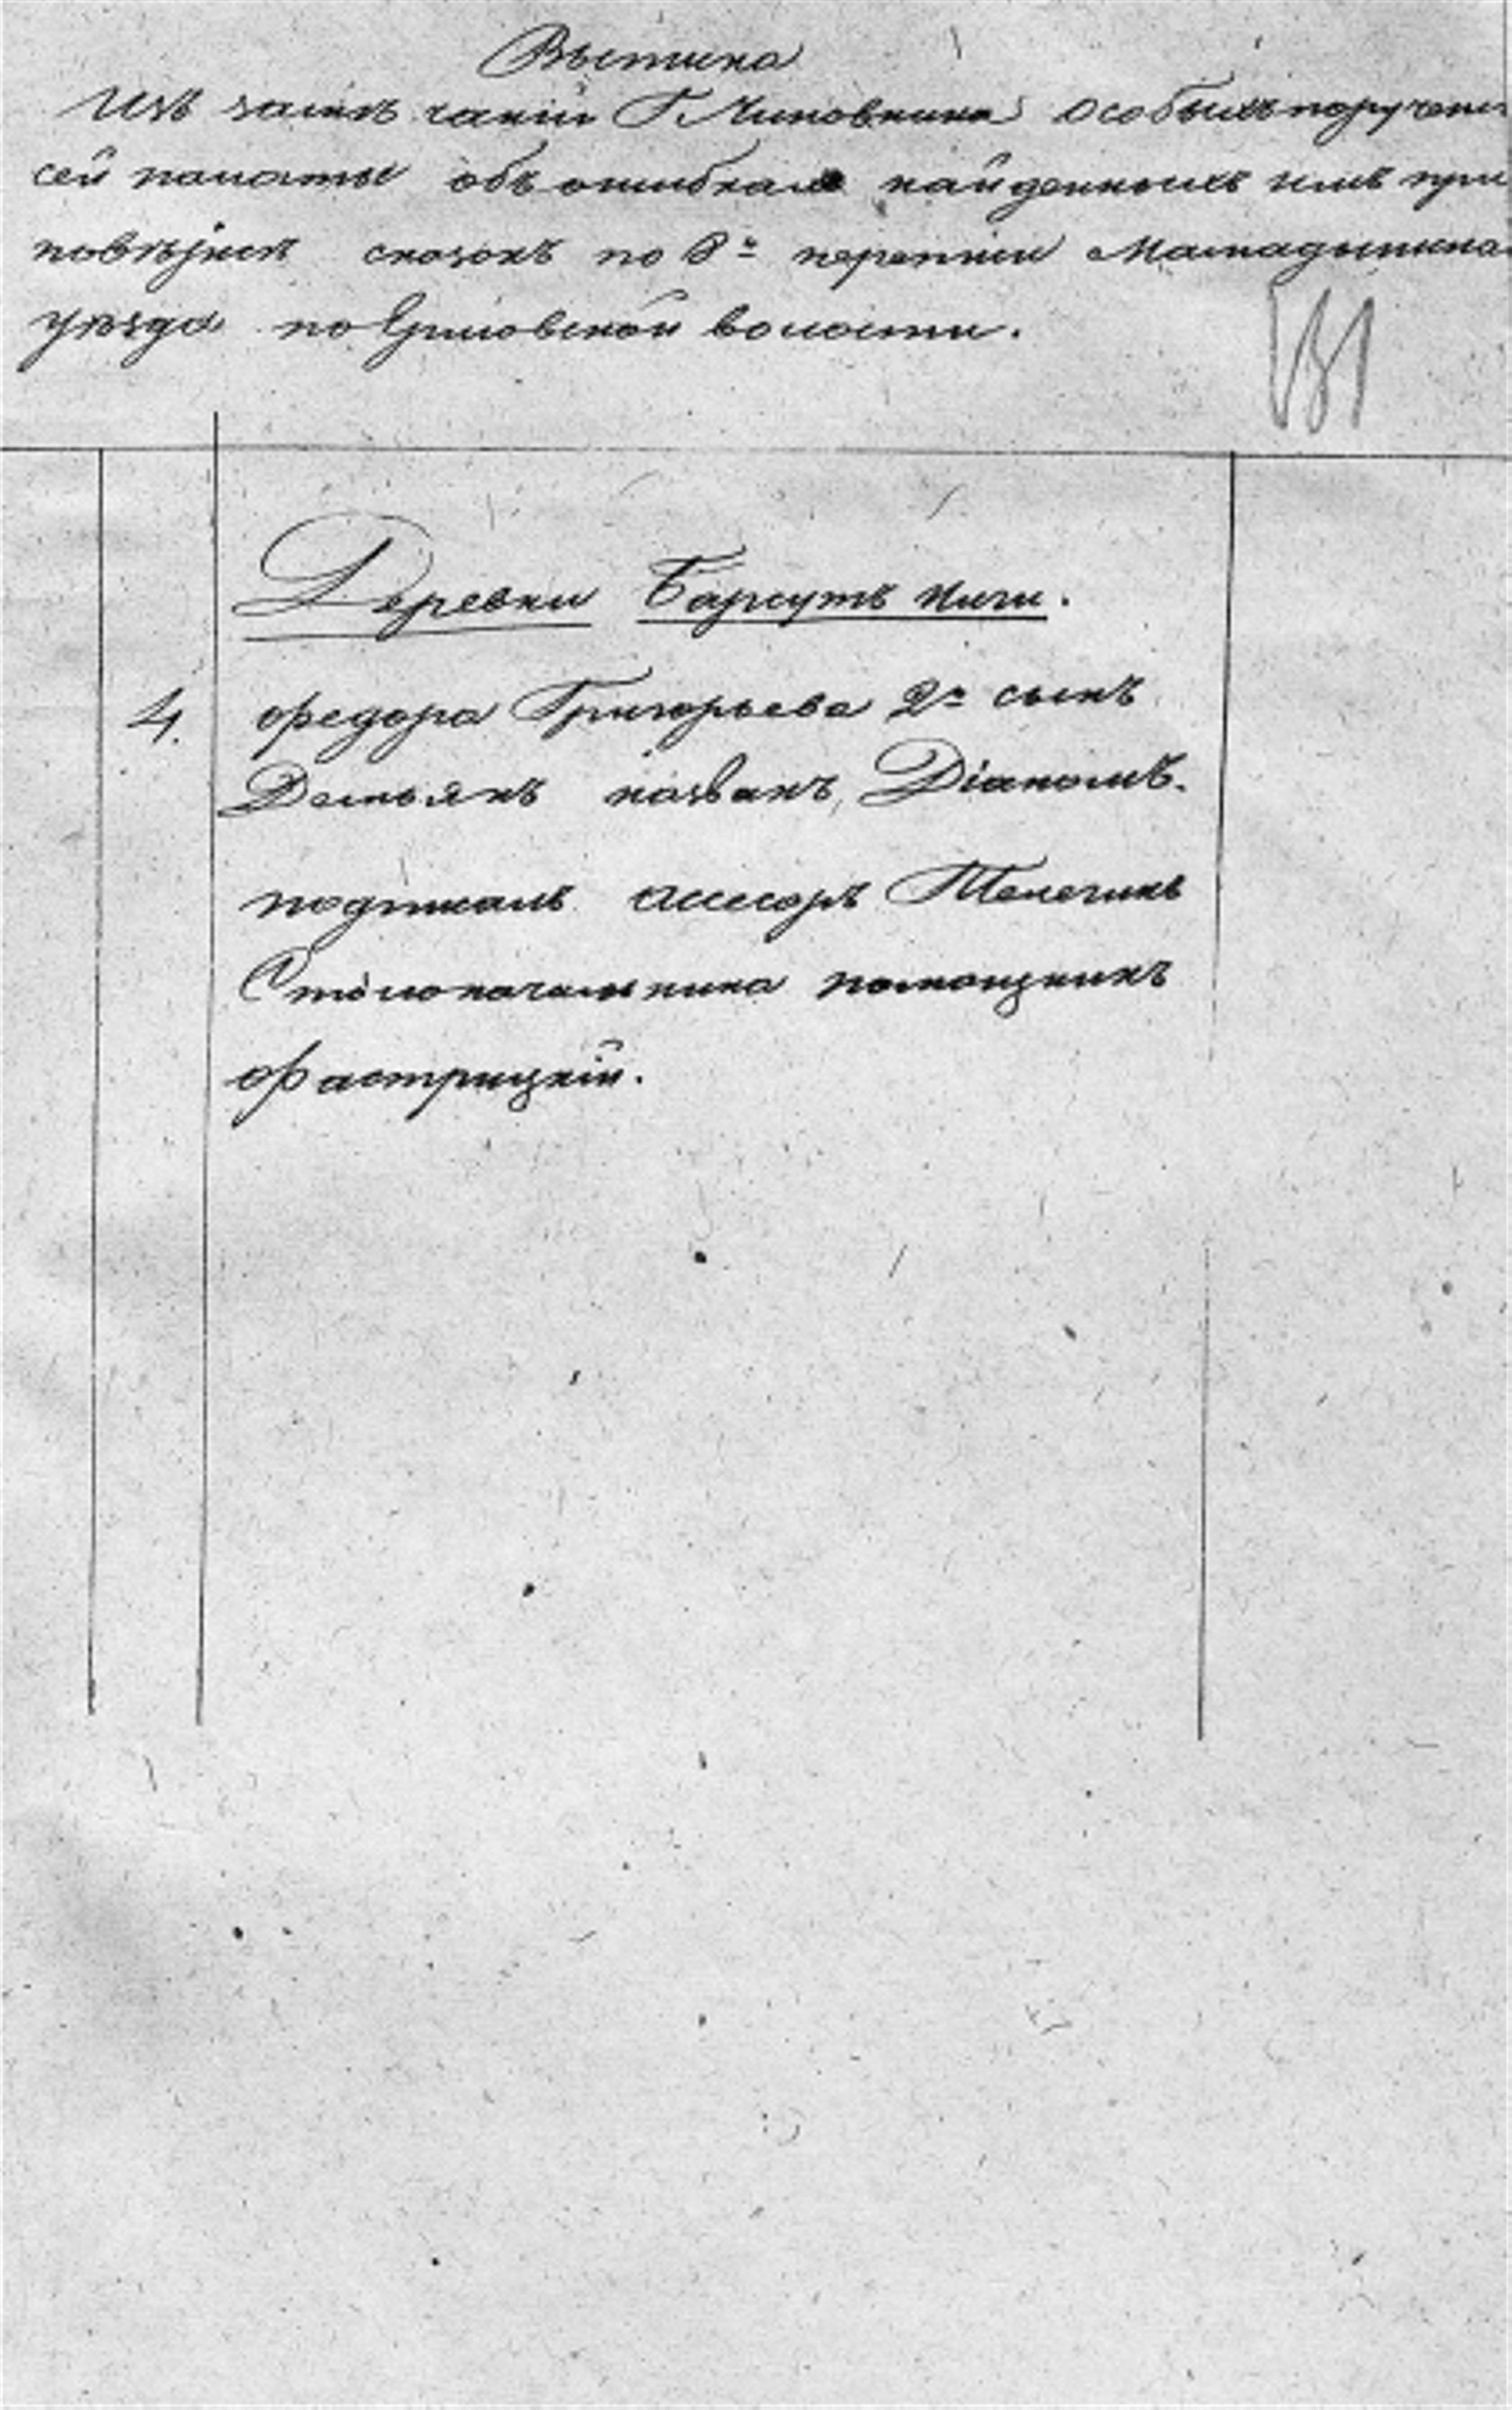 Выписка
Изъ замѣчаній Г. Чиновника Особыхъ поруче
сей палаты объ ошибкахъ найденныхъ имъ при
повѣркѣ сказокъ по 8й переписи Мамадышска
уѣзда по волости.
131
Деревни Барсутъ
4. Федора Григорьева 2й сынъ
Демьянъ названъ, Діаномъ.
подписалъ Ассесоръ Телегинъ
Столоначальника помощникъ
Фастрицкій.